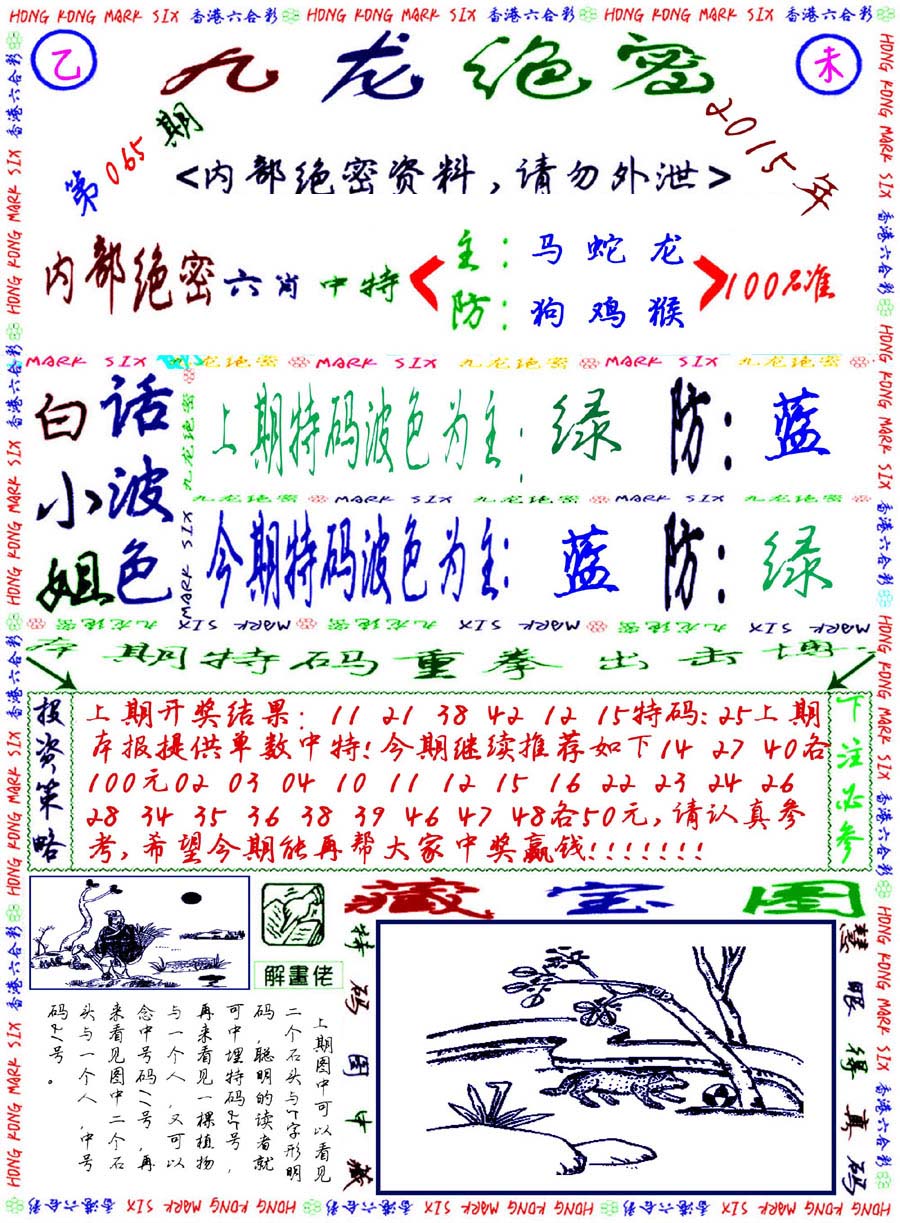 HONG KONG MARK SIX 香港六合彩 HONG KONG MARK SIX 香港六合彩 HONG KONG MARK SIX 香港六合彩
乙
九龙绝密
未
第065期
2015年
<内部绝密资料,请勿外泄>
内部绝密六肖中特
主:马蛇龙
防:狗鸡猴
100%准
MARK SIX 九龙绝密 MARK SIX 九龙绝密 MARK SIX 九龙绝密
白话
小波
姐色
上期特码波色为主:绿 防:蓝
九龙绝密 MARK SIX 九龙绝密 MARK SIX 九龙绝密
今期特码波色为主:蓝 防:绿
MARK SIX 九龙绝密 MARK SIX 九龙绝密 MARK SIX 九龙绝密
本期特码重拳出击
投资策略
上期开奖结果:11 21 38 42 12 15特码:25上期
本报提供单数中特!今期继续推荐如下14 27 40各
100元02 03 04 10 11 12 15 16 22 23 24 26
28 34 35 36 38 39 46 47 48各50元,请认真参
考,希望今期能再帮大家中奖赢钱!!!!!!!
下注必参
解畫佬
藏宝图
特码图中藏
慧眼得真码
上期图中可以看见
二个石头与7字形明
码,聪明的读者就
可中埋特码27号,
再来看见一棵植物
与一个人,又可以
念中号码11号,再
来看见图中二个石
头与一个人,中号
码21号。
HONG KONG MARK SIX 香港六合彩 HONG KONG MARK SIX 香港六合彩 HONG KONG MARK SIX 香港六合彩